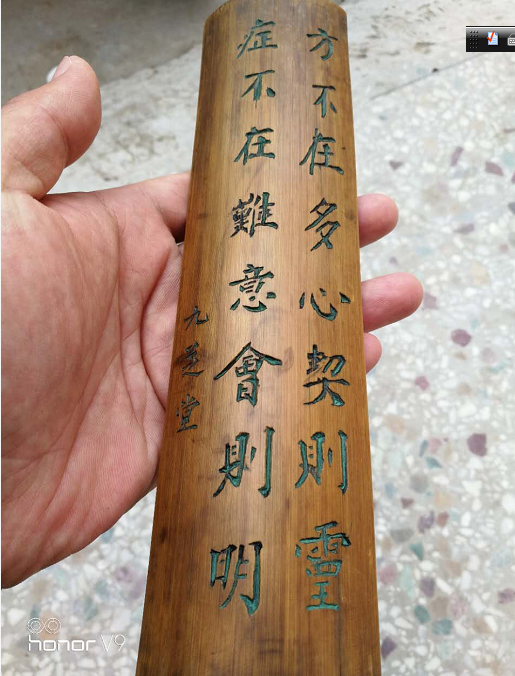 方不在多心契則靈
症不在難意會則明
九芝堂
honor V9